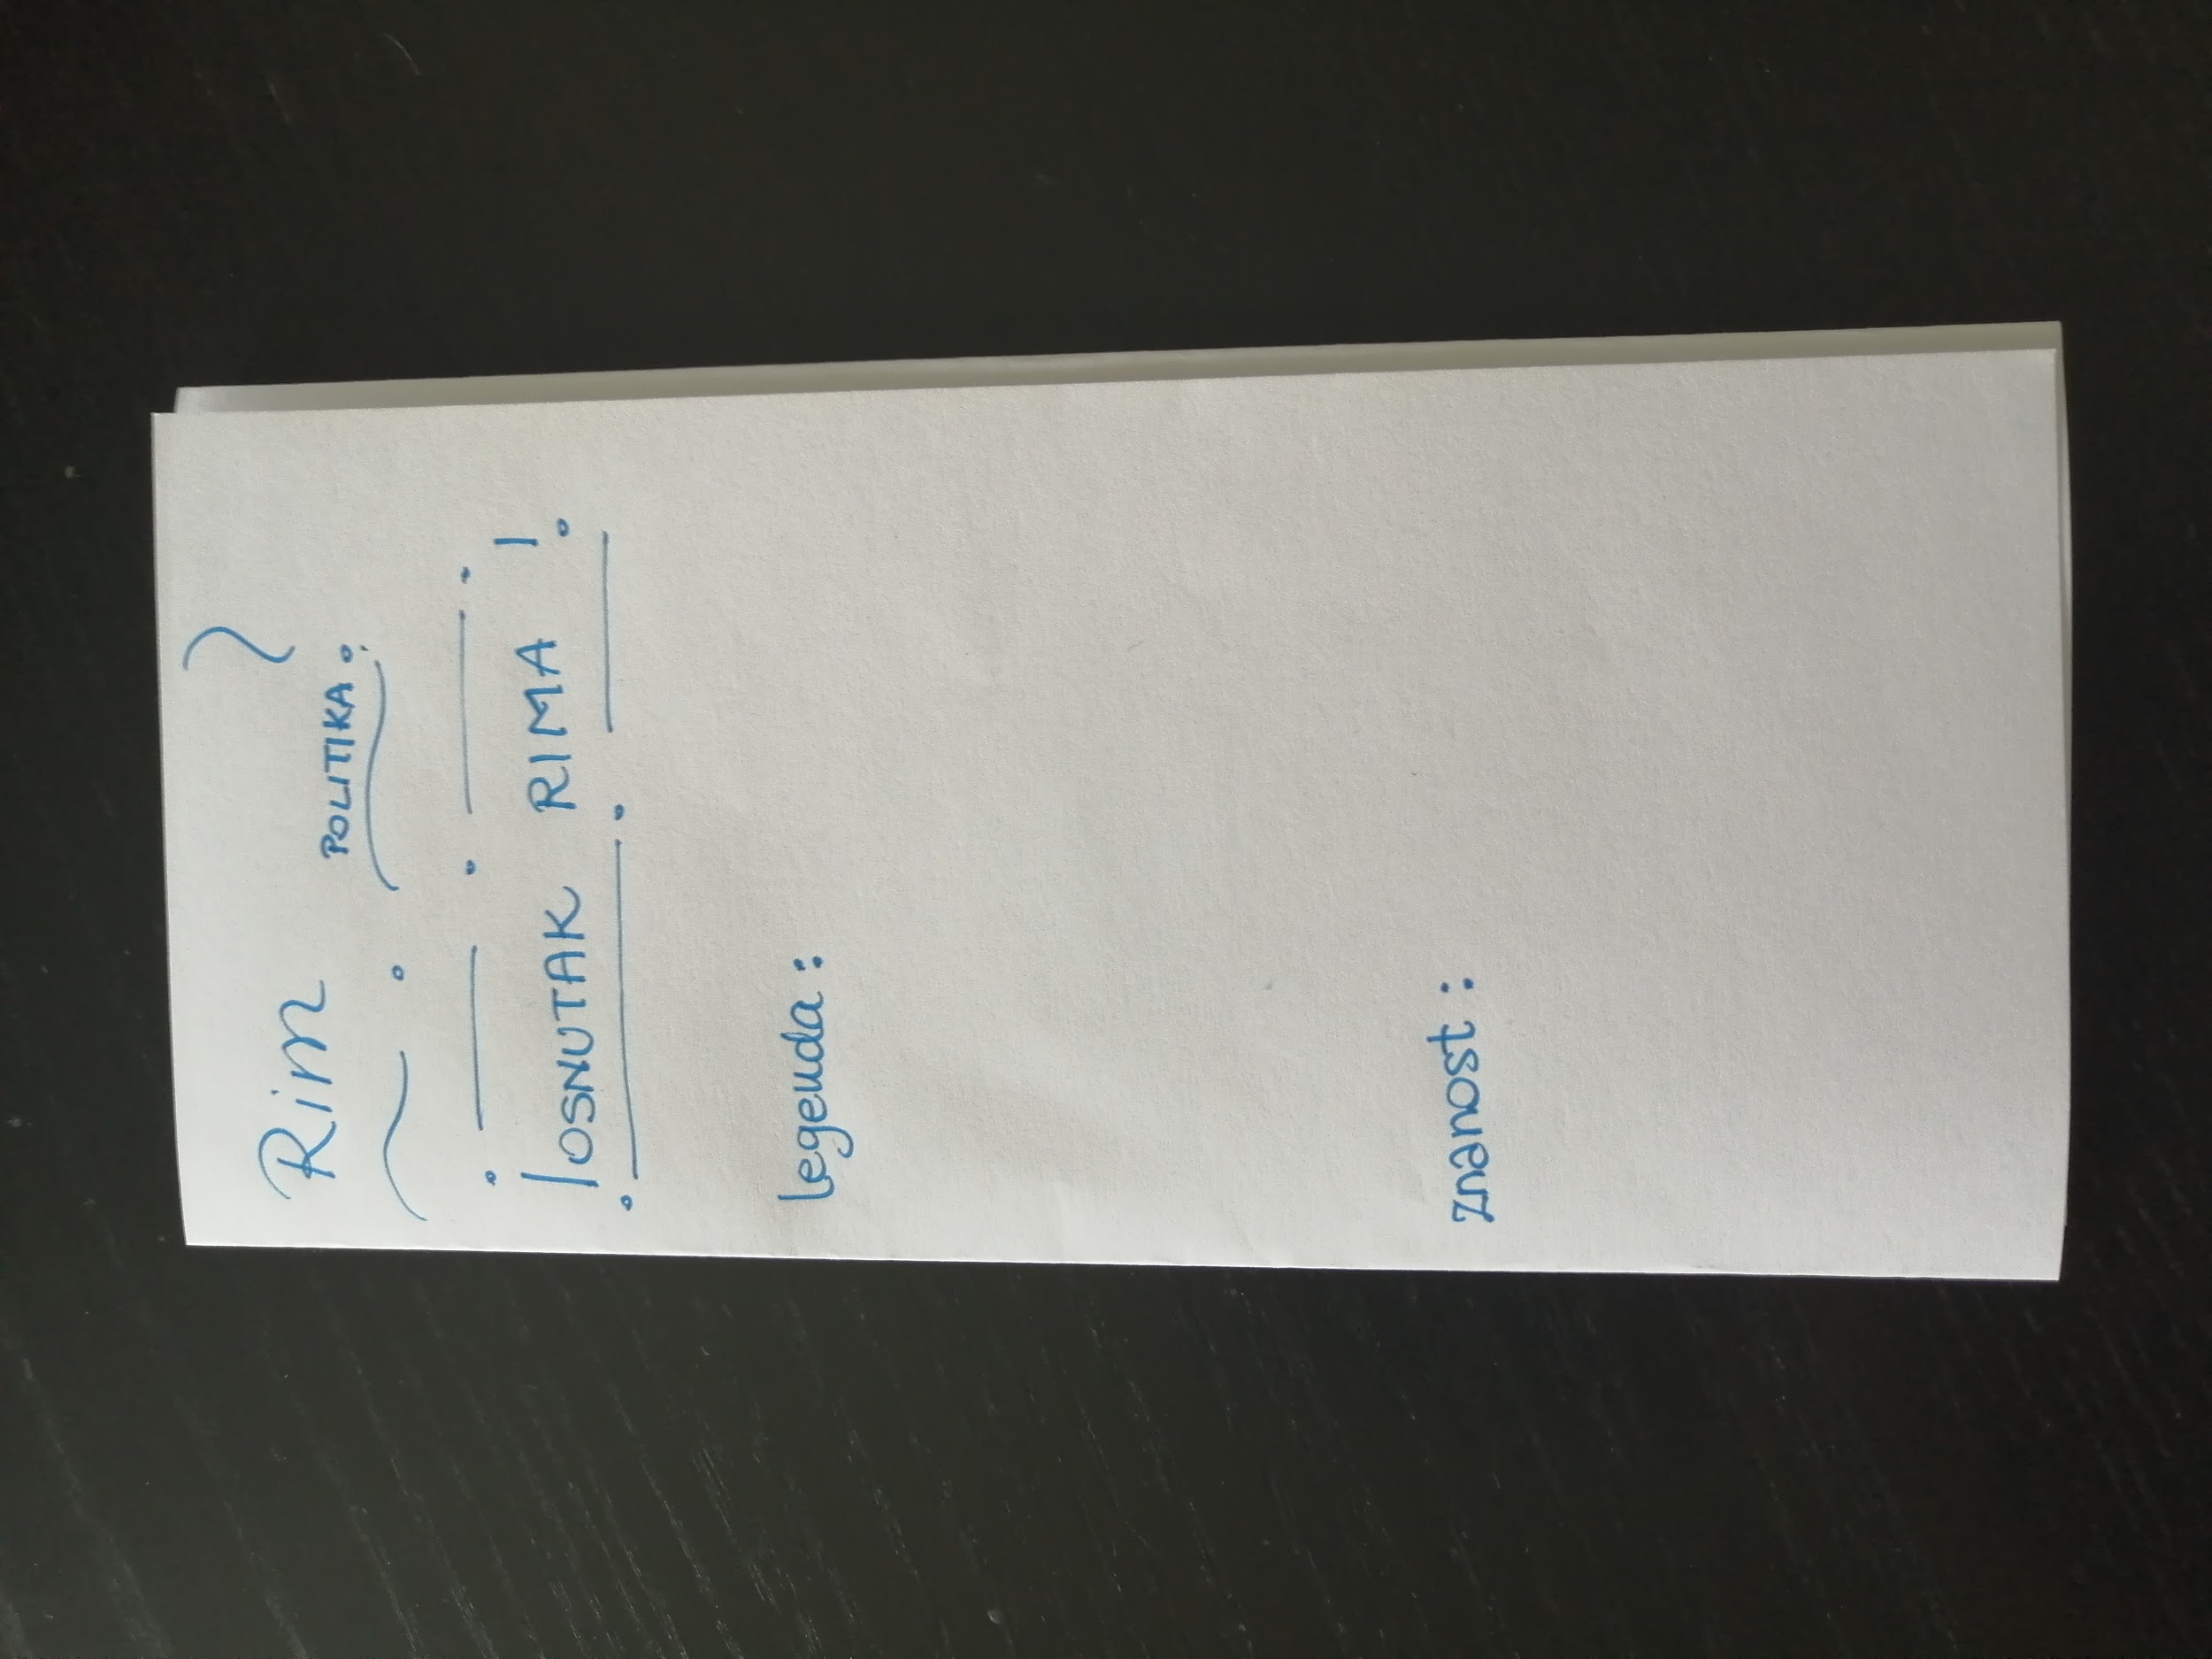 Rim
POLITIKA
OSNUTAK RIMA
Legenda:
Znanost: